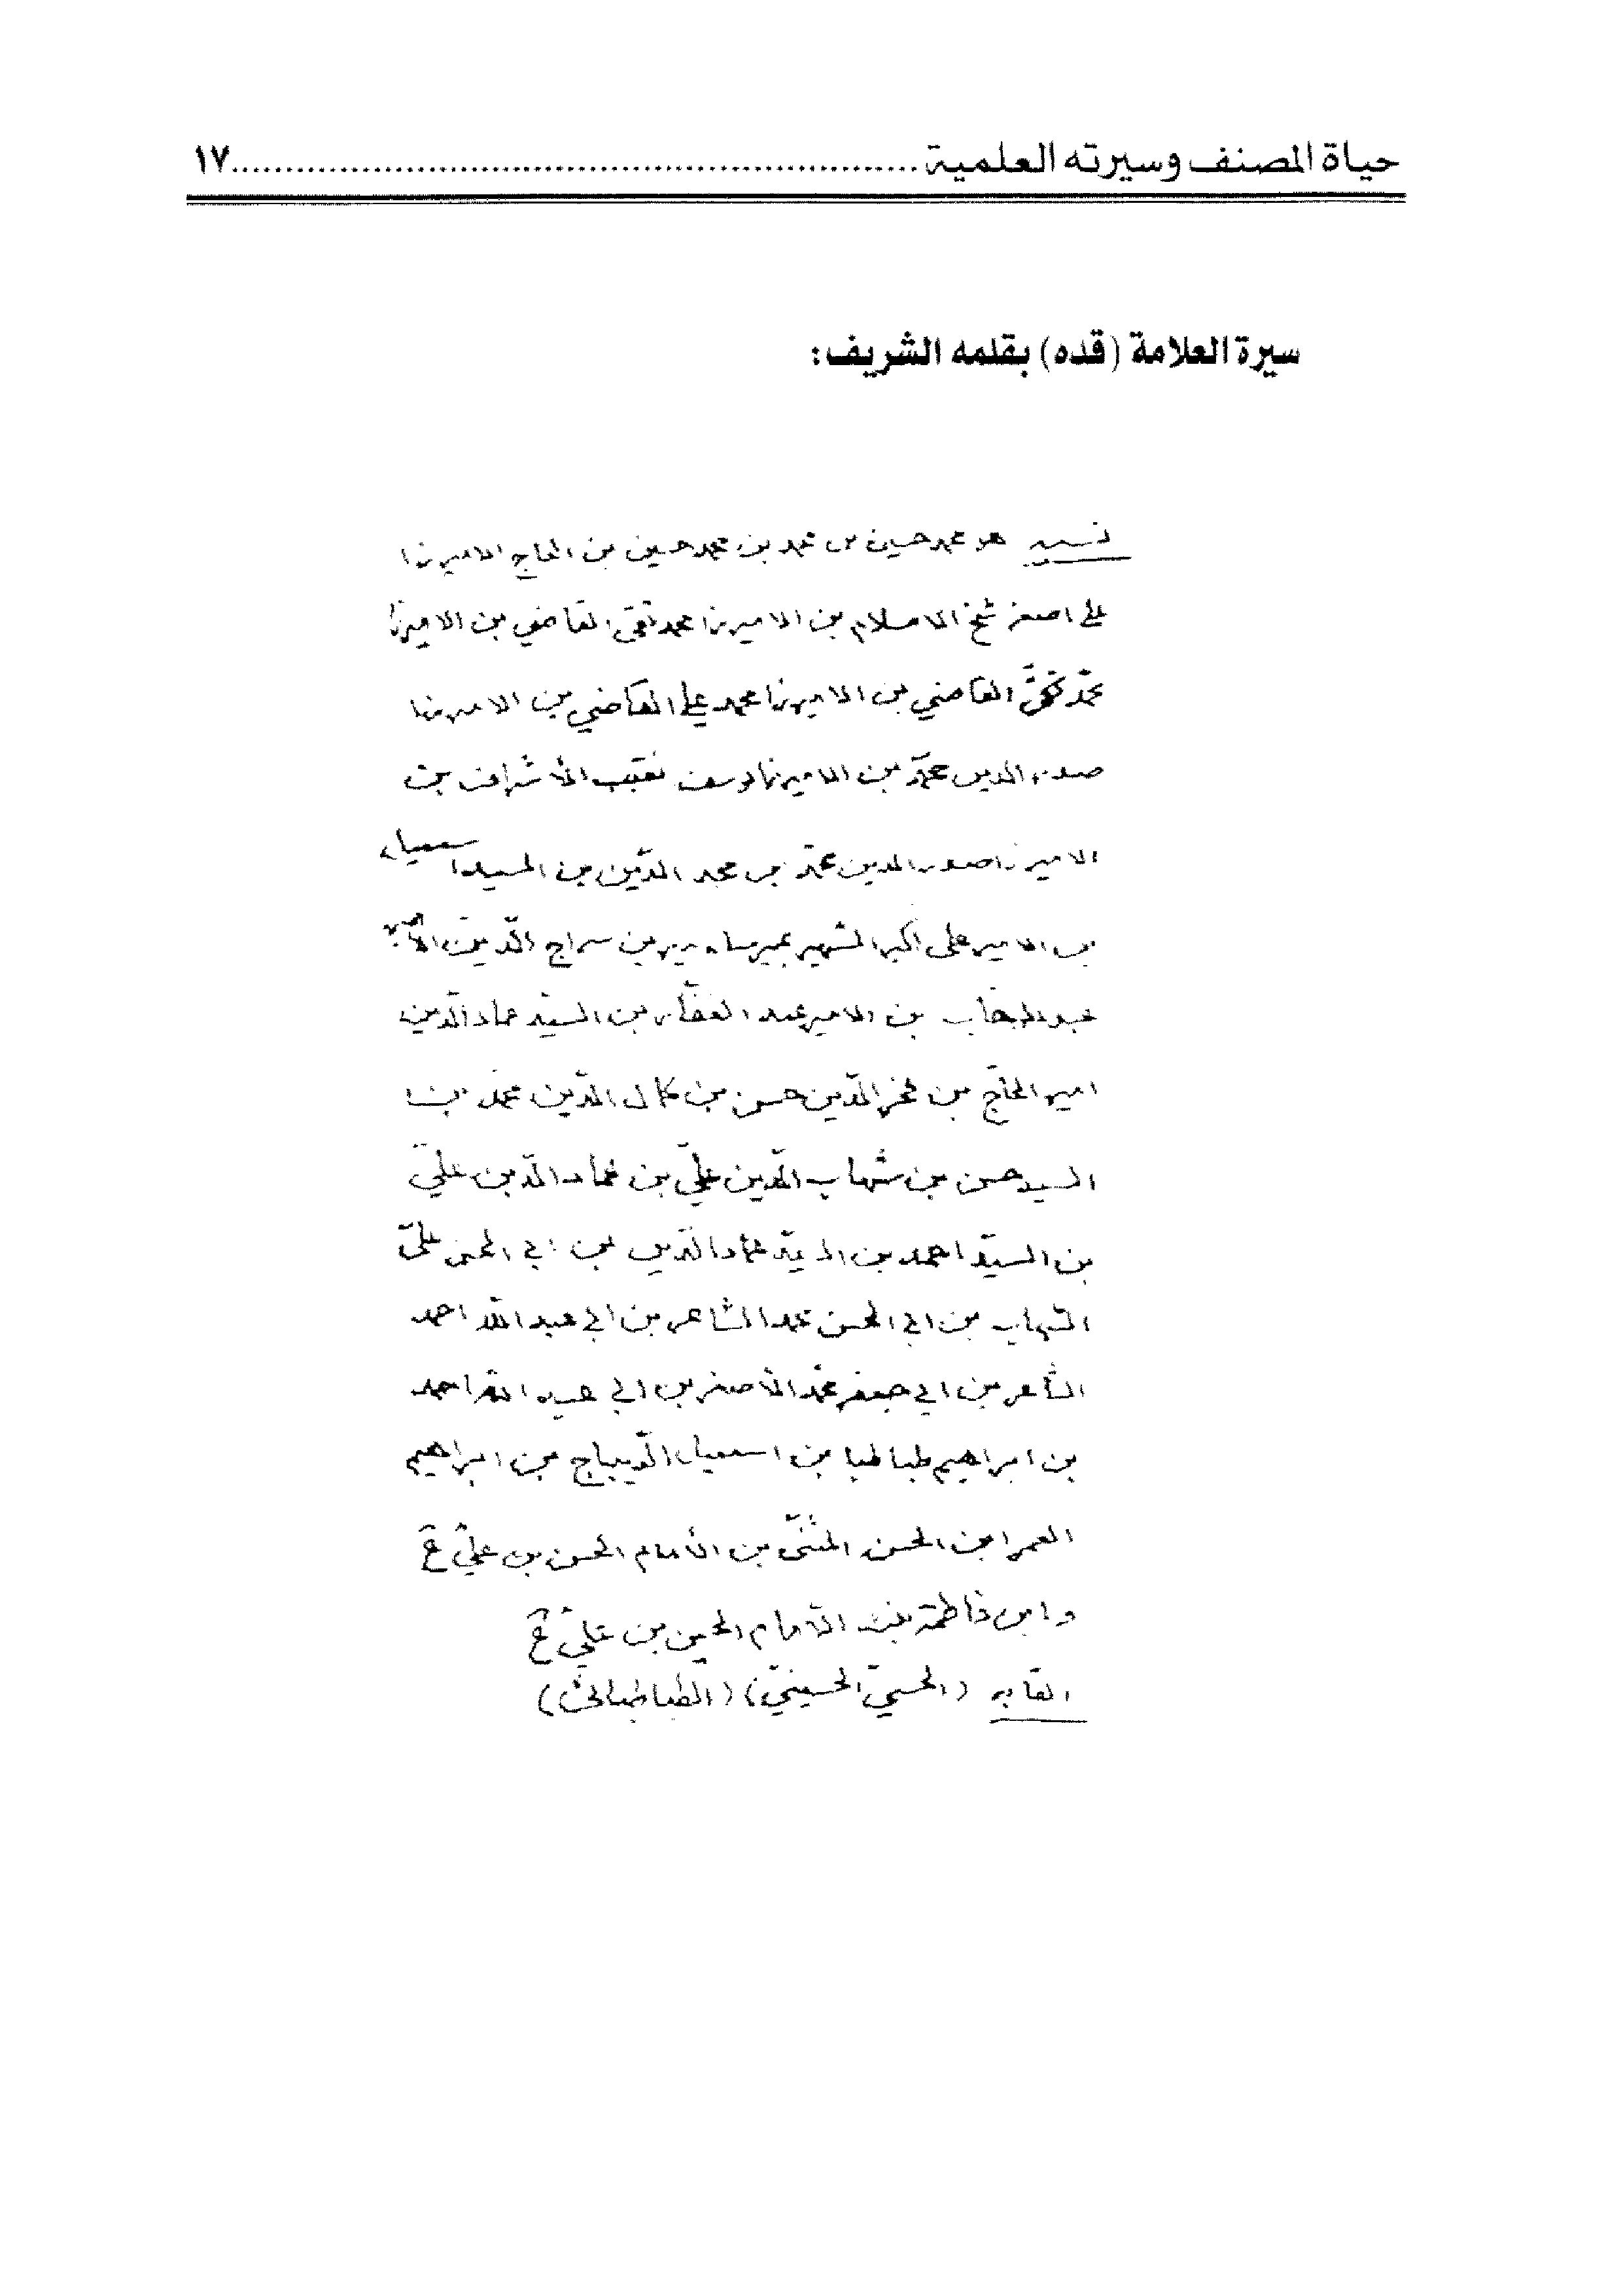 حياة المصنف وسيرته العلمية .................................................................١٧
سيرة العلامة (قده) بقلمه الشريف:
نسبه هو محمد حسين بن محمد بن محمد حسين بن الحاج الاميرزا
علي اصغر شيخ الاسلام بن الاميرزا محمد تقي القاضي بن الاميرزا
محمّد القاضي بن الاميرزا محمد علي القاضي بن الاميرزا
صدر الدين محمّد بن الاميرزا يوسف نقيب الأشراف بن
الاميرزا صدر الدين محمّد بن مجد الدّين بن السيد اسمعيل
بن الامير على اكبر الشهير بمير شاه مير بن سراج الدّين الأمير
عبد الوهّاب بن الامير عبد الغفّار بن السيّد عماد الدّين
امير الحاجّ بن فخر الدّين حسن بن كمال الدّين محمّد بن
السيد حسن بن شهاب الدّين عليّ بن عماد الدّين عليّ
بن السيّد احمد بن السيّد عماد الدّين بن ابي الحسن عليّ
الشهاب بن ابي الحسن محمد الشاعر بن ابي عبد الله احمد
الشاعر بن ابي جعفر محمّد الأصغر بن ابي عبد الله احمد
بن ابراهيم طباطبا بن اسمعيل الدّيباج بن ابراهيم
الغمر ابن الحسن المثنّى بن الأمام الحسن بن عليّ ع
و ابن فاطمة بنت الأمام الحسين بن عليّ ع
القابه (الحسنيّ الحسينيّ) (الطباطبائيّ)